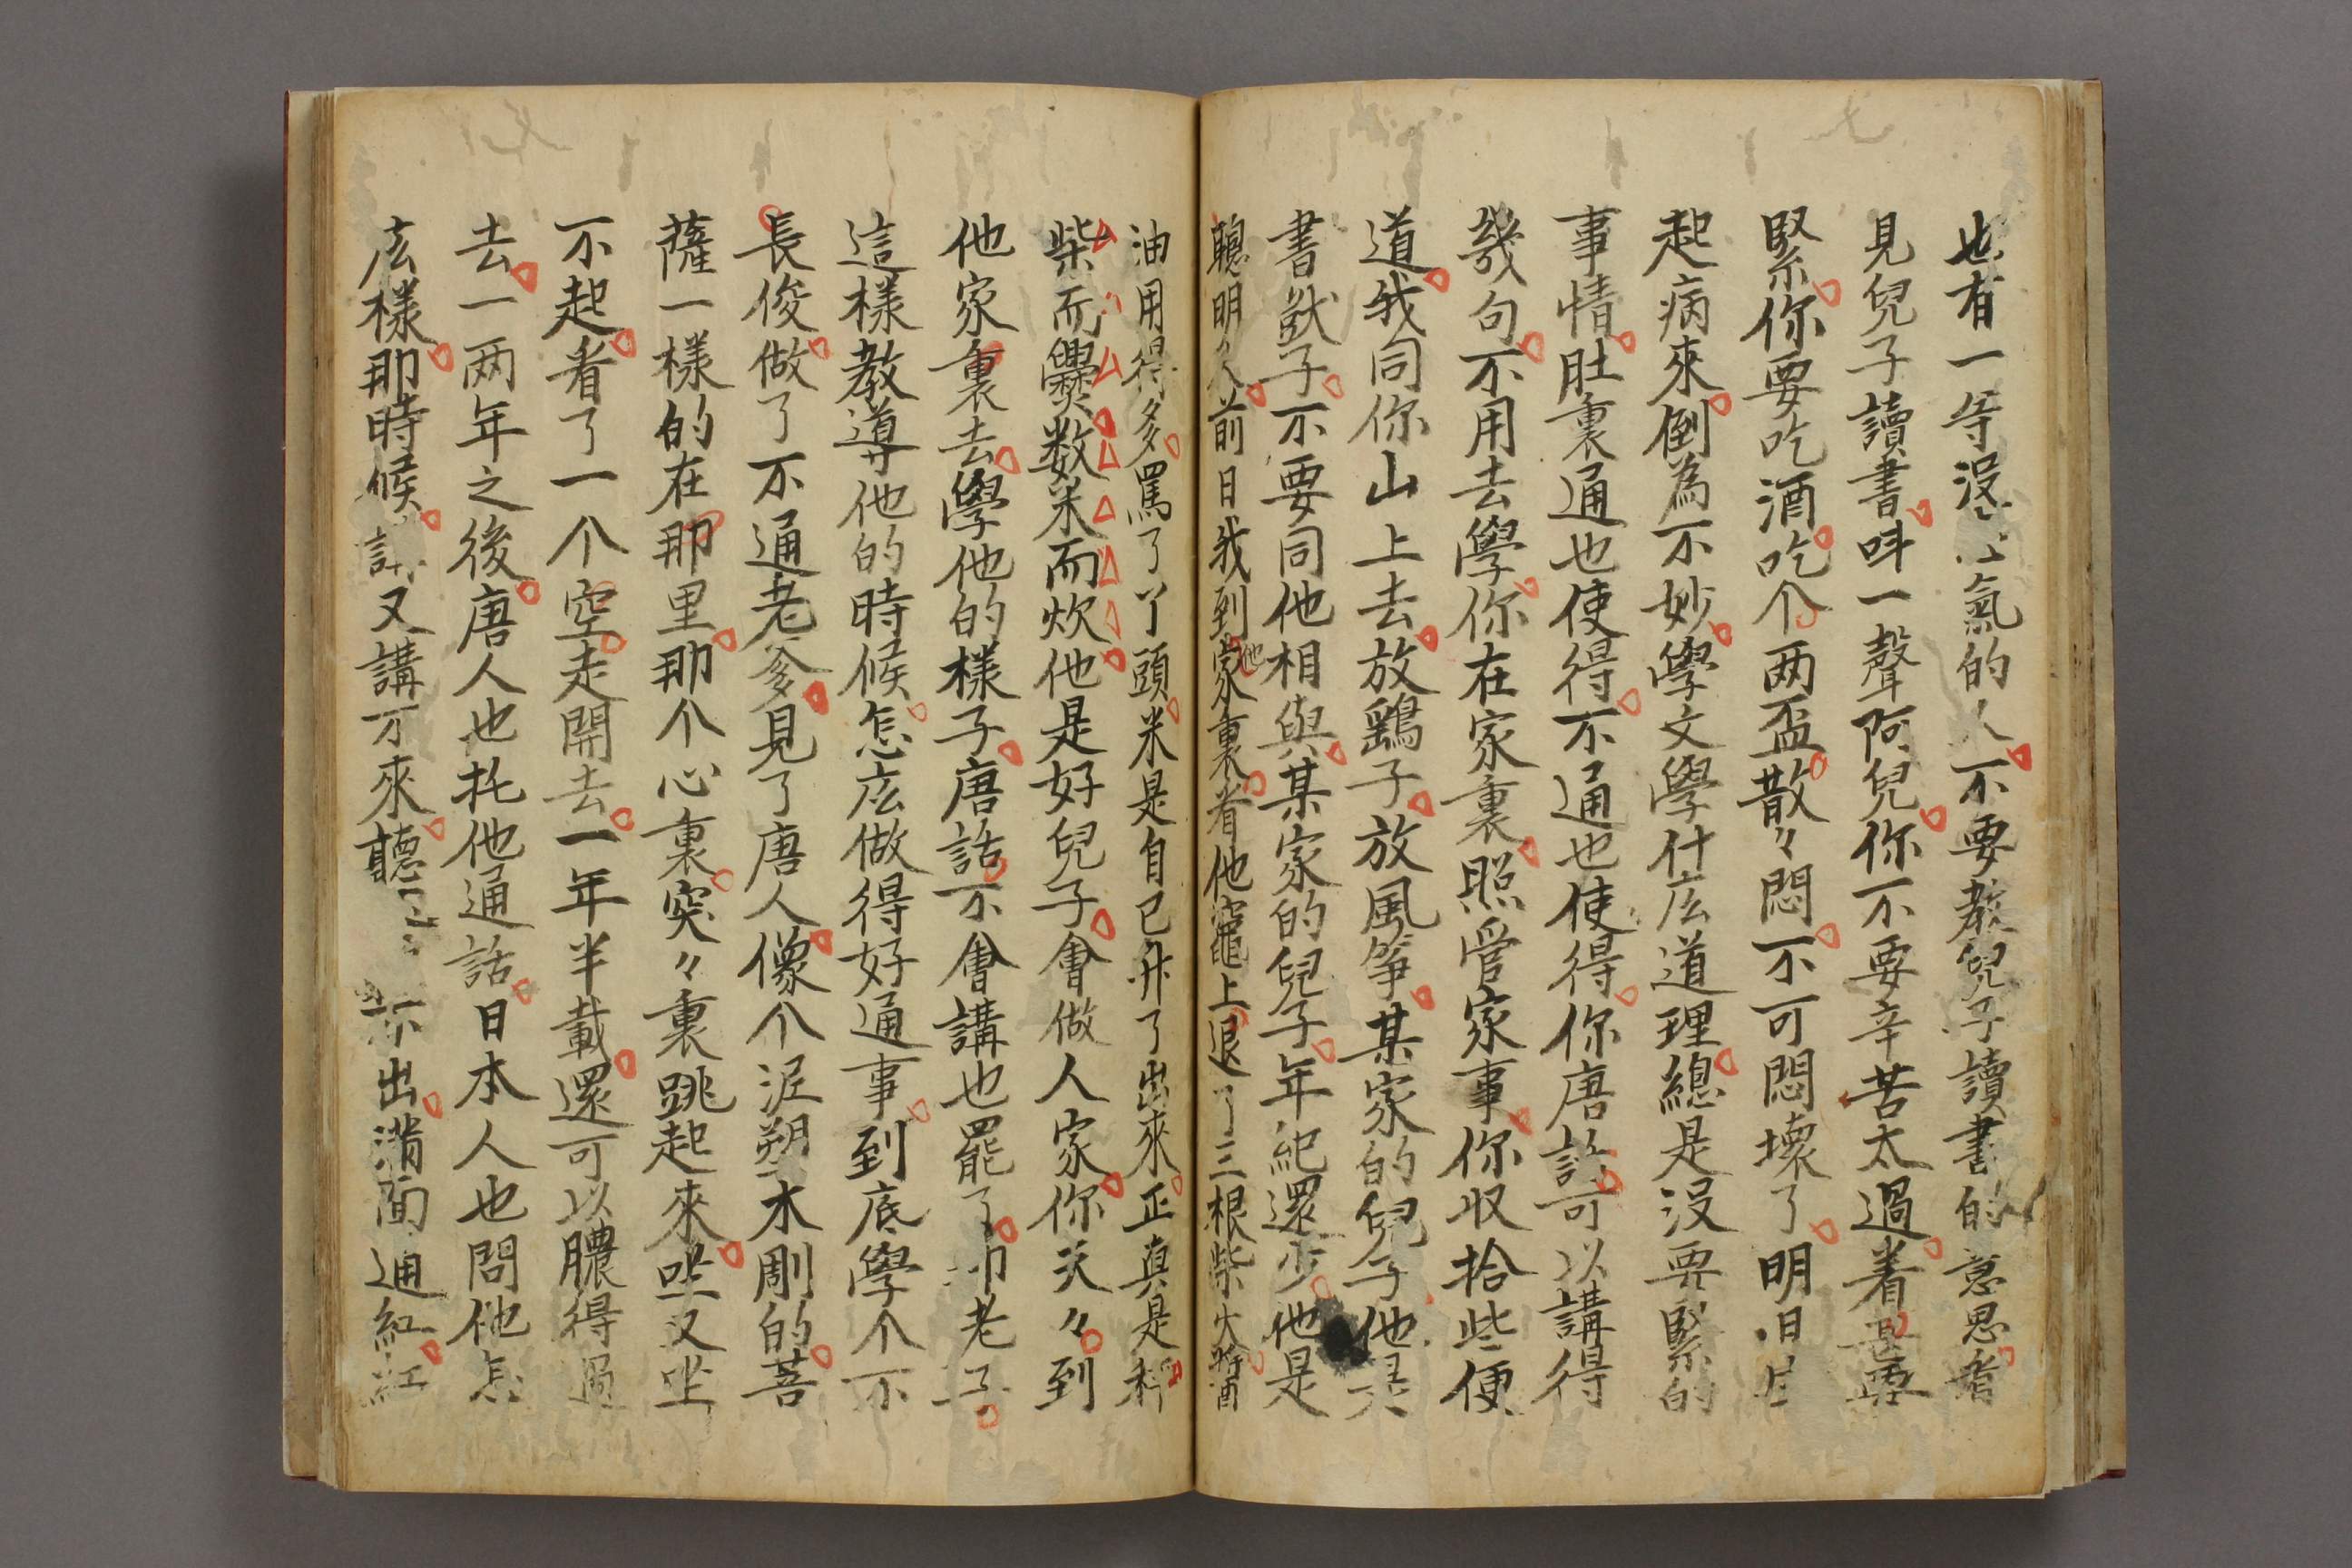 也有一等沒 氣的人不要教兒子讀書的意思看
見兒子讀書呌一聲阿兒你不要辛苦太過着 要
緊你要吃酒吃个两盃散々悶不可悶壞了明日生
起病來倒為不妙學文學什庅道理總是沒要緊的
事情肚裏通也使得不通也使得你唐話可以講得
幾句不用去學你在家裏照管家事你収拾些便
道我同你山上去放鷂子放風箏某家的兒子他是
書獃子不要同他相與某家的兒子年紀還少他是
聽明人前日我到他家裏看他竈上退了三根柴火醬
油用得多罵了丫頭米是自已升了出來正真是稱
柴而爨数米而炊他是好兒子會做人家你天々到
他家裏去學他的樣子唐話不會講也罷了 老子
這樣教導他的時候怎庅做得好通事到底學个不
長俊做了不通老爹見了唐人像个泥塑木剛的菩
薩一樣的在那里那个心裏突々裏跳起來坐又坐
不起看了一个空走開去一年半載還可以膿得過
去一两年之後唐人也托他通話日本人也問他怎
庅樣那時候講又講不來聽 出滿面通紅紅